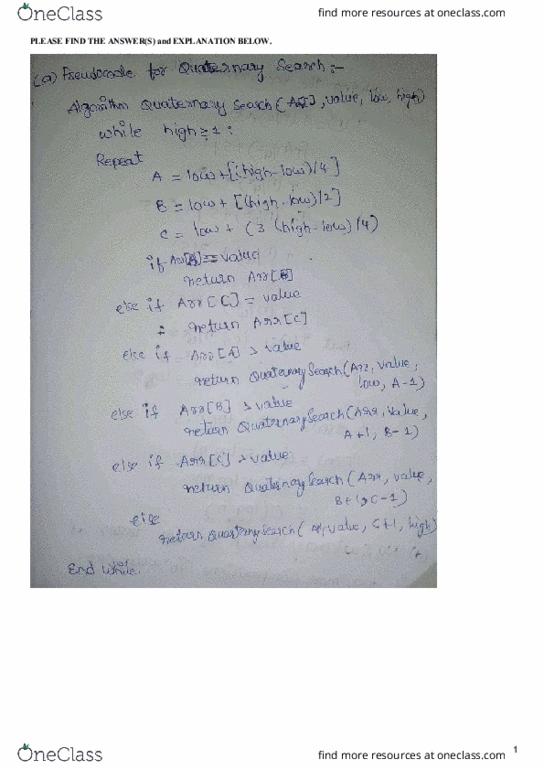 OneClass
find more resources at oneclass.com
PLEASE FIND THE ANSWER(S) and EXPLANATION BELOW.
(a) Pseudocode for Quaternary Search :-
Algorithm Quaternary Search (Arr[], value, low, high)
while high ≥ 1 :
Repeat
A = low + [(high-low)/4]
B = low + [(high-low)/2]
C = low + (3 (high-low)/4)
if Arr[B] == value
return Arr[B]
else if Arr[C] = value
return Arr[C]
else if Arr[A] > value
return QuaternarySearch(Arr, value,
low, A-1)
else if Arr[B] > value
return QuaternarySearch(Arr, value,
A+1, B-1)
else if Arr[C] > value
return QuaternarySearch (Arr, value,
B+1, C-1)
else
return QuaternarySearch( value, C+1, high)
End while.
OneClass
find more resources at oneclass.com
1